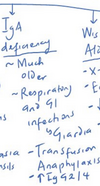 IgA
deficiency
~ Much
older
- Respiratory
and GI
infections
↳ Giardia
- Transfusion
Anaphylaxis
- ↑ IgG2/4
Wis
Ald
- X-